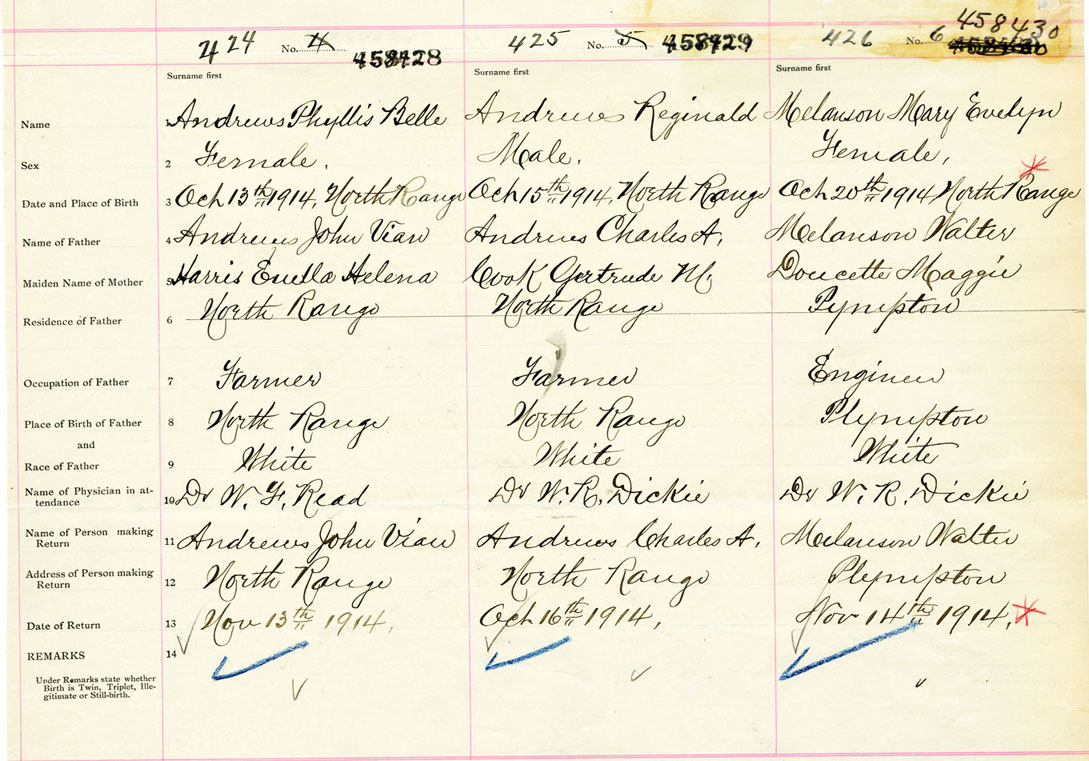 424 No. 4 458428 425 No. 5 458429 426 No. 6 458430
Surname first Surname first Surname first
Name 1 Andrews Phyllis Belle Andrews Reginald Melanson Mary Evelyn
Sex 2 Female. Male. Female,
Date and Place of Birth 3 Oct 13th 1914, North Range Oct 15th 1914, North Range Oct 20th 1914 North Range
Name of Father 4 Andrews John Vian Andrews Charles A. Melanson Walter
Maiden Name of Mother 5 Harris Helena Cook Gertrude M. Doucette Maggie
Residence of Father 6 North Range North Range Plympton
Occupation of Father 7 Farmer Farmer Engineer
Place of Birth of Father 8 North Range North Range Plympton
and
Race of Father 9 White White White
Name of Physician in at-
tendance 10 Dr W. F. Read Dr W. R. Dickie Dr W. R. Dickie
Name of Person making
Return 11 Andrews John Vian Andrews Charles A. Melanson Walter
Address of Person making
Return 12 North Range North Range Plympton
Date of Return 13 Nov 13th 1914, Oct 16th 1914, Nov 14th 1914,
REMARKS 14
Under Remarks state whether
Birth is Twin, Triplet, Ille-
gitimate or Still-birth.